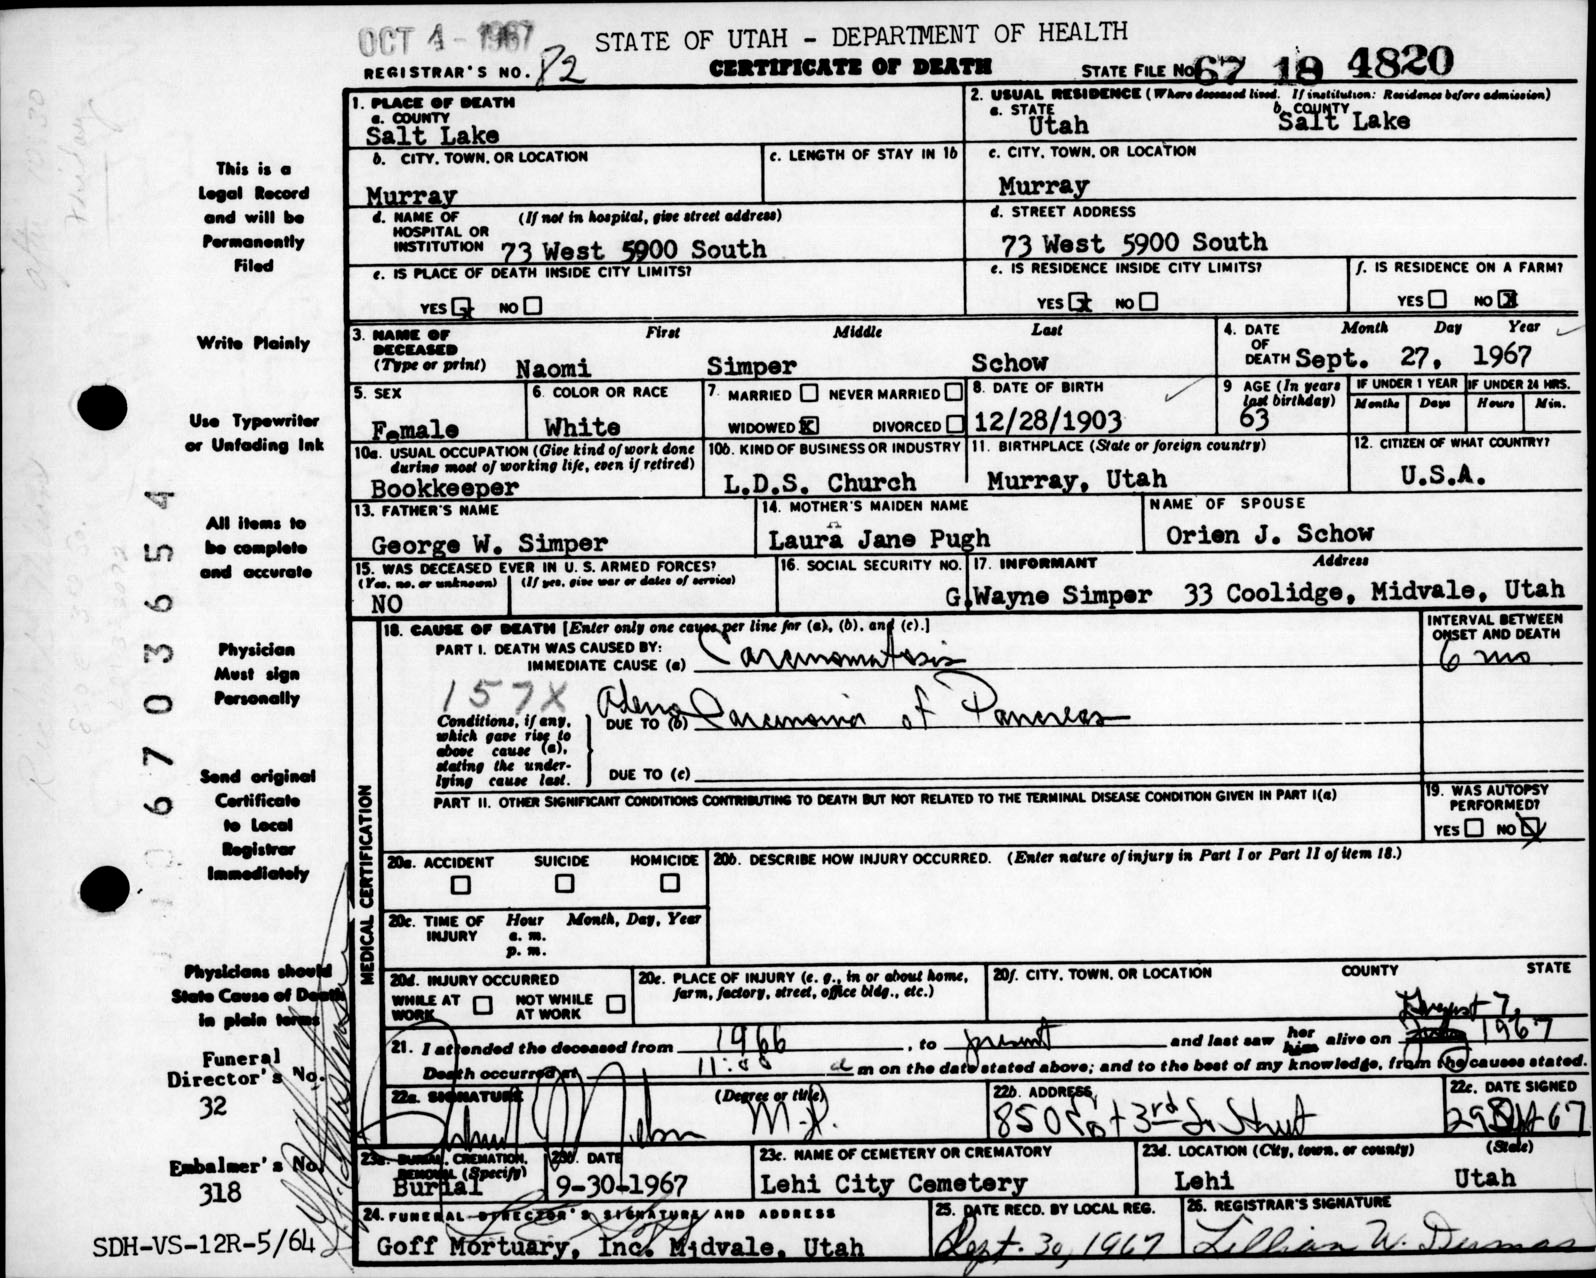 OCT 4 - 1967
STATE OF UTAH - DEPARTMENT OF HEALTH
REGISTRAR'S NO. 82
CERTIFICATE OF DEATH
STATE FILE NO. 67 18 4820
1. PLACE OF DEATH
a. COUNTY
Salt Lake
2. USUAL RESIDENCE (Where deceased lived. If institution: Residence before admission)
a. STATE
Utah
b. COUNTY
Salt Lake
b. CITY, TOWN, OR LOCATION
Murray
c. LENGTH OF STAY IN 1b
c. CITY, TOWN, OR LOCATION
Murray
d. NAME OF HOSPITAL OR INSTITUTION
(If not in hospital, give street address)
73 West 5900 South
d. STREET ADDRESS
73 West 5900 South
e. IS PLACE OF DEATH INSIDE CITY LIMITS?
YES x NO
e. IS RESIDENCE INSIDE CITY LIMITS?
YES x NO
f. IS RESIDENCE ON A FARM?
YES NO x
3. NAME OF DECEASED
(Type or print)
First Middle Last
Naomi Simper Schow
4. DATE OF DEATH
Month Day Year
Sept. 27, 1967
5. SEX
Female
6. COLOR OR RACE
White
7. MARRIED NEVER MARRIED
WIDOWED X DIVORCED
8. DATE OF BIRTH
12/28/1903
9 AGE (In years last birthday)
63
IF UNDER 1 YEAR
Months Days
IF UNDER 24 HRS.
Hours Min.
10a. USUAL OCCUPATION (Give kind of work done during most of working life, even if retired)
Bookkeeper
10b. KIND OF BUSINESS OR INDUSTRY
L.D.S. Church
11. BIRTHPLACE (State or foreign country)
Murray, Utah
12. CITIZEN OF WHAT COUNTRY?
U.S.A.
13. FATHER'S NAME
George W. Simper
14. MOTHER'S MAIDEN NAME
Laura Jane Pugh
NAME OF SPOUSE
Orien J. Schow
15. WAS DECEASED EVER IN U. S. ARMED FORCES?
(Yes, no, or unknown) (If yes, give war or dates of service)
NO
16. SOCIAL SECURITY NO.
17. INFORMANT Address
G.Wayne Simper 33 Coolidge, Midvale, Utah
MEDICAL CERTIFICATION
18. CAUSE OF DEATH [Enter only one cause per line for (a), (b), and (c).]
INTERVAL BETWEEN ONSET AND DEATH
PART I. DEATH WAS CAUSED BY:
IMMEDIATE CAUSE (a) Carcinomatosis
6 mo
157X
Conditions, if any, which gave rise to above cause (a), stating the underlying cause last.
DUE TO (b) Adeno Carcinoma of Pancreas
DUE TO (c)
PART II. OTHER SIGNIFICANT CONDITIONS CONTRIBUTING TO DEATH BUT NOT RELATED TO THE TERMINAL DISEASE CONDITION GIVEN IN PART I(a)
19. WAS AUTOPSY PERFORMED?
YES NO X
20a. ACCIDENT SUICIDE HOMICIDE
20b. DESCRIBE HOW INJURY OCCURRED. (Enter nature of injury in Part I or Part II of item 18.)
20c. TIME OF INJURY
Hour Month, Day, Year
a. m.
p. m.
20d. INJURY OCCURRED
WHILE AT WORK
NOT WHILE AT WORK
20e. PLACE OF INJURY (e. g., in or about home, farm, factory, street, office bldg., etc.)
20f. CITY, TOWN, OR LOCATION COUNTY STATE
August 7,
21. I attended the deceased from 1966, to present and last saw her him alive on 1967
Death occurred at 11:00 a m on the date stated above; and to the best of my knowledge, from the causes stated.
22a. SIGNATURE (Degree or title)
M.D.
22b. ADDRESS
850 E 3rd So Street
22c. DATE SIGNED
29 Sept 67
23a. BURIAL, CREMATION, REMOVAL (Specify)
Burial
23b. DATE
9-30-1967
23c. NAME OF CEMETERY OR CREMATORY
Lehi City Cemetery
23d. LOCATION (City, town, or county) (State)
Lehi Utah
24. FUNERAL DIRECTOR'S SIGNATURE AND ADDRESS
Goff Mortuary, Inc. Midvale, Utah
25. DATE RECD. BY LOCAL REG.
Sept. 30, 1967
26. REGISTRAR'S SIGNATURE
Lillian W.
This is a
Legal Record
and will be
Permanently
Filed
Write Plainly
Use Typewriter
or Unfading Ink
All items to
be complete
and accurate
Physician
Must sign
Personally
Send original
Certificate
to Local
Registrar
Immediately
Physicians should
State Cause of Death
in plain terms
Funeral
Director's No.
32
Embalmer's No.
318
SDH-VS-12R-5/64
67036554